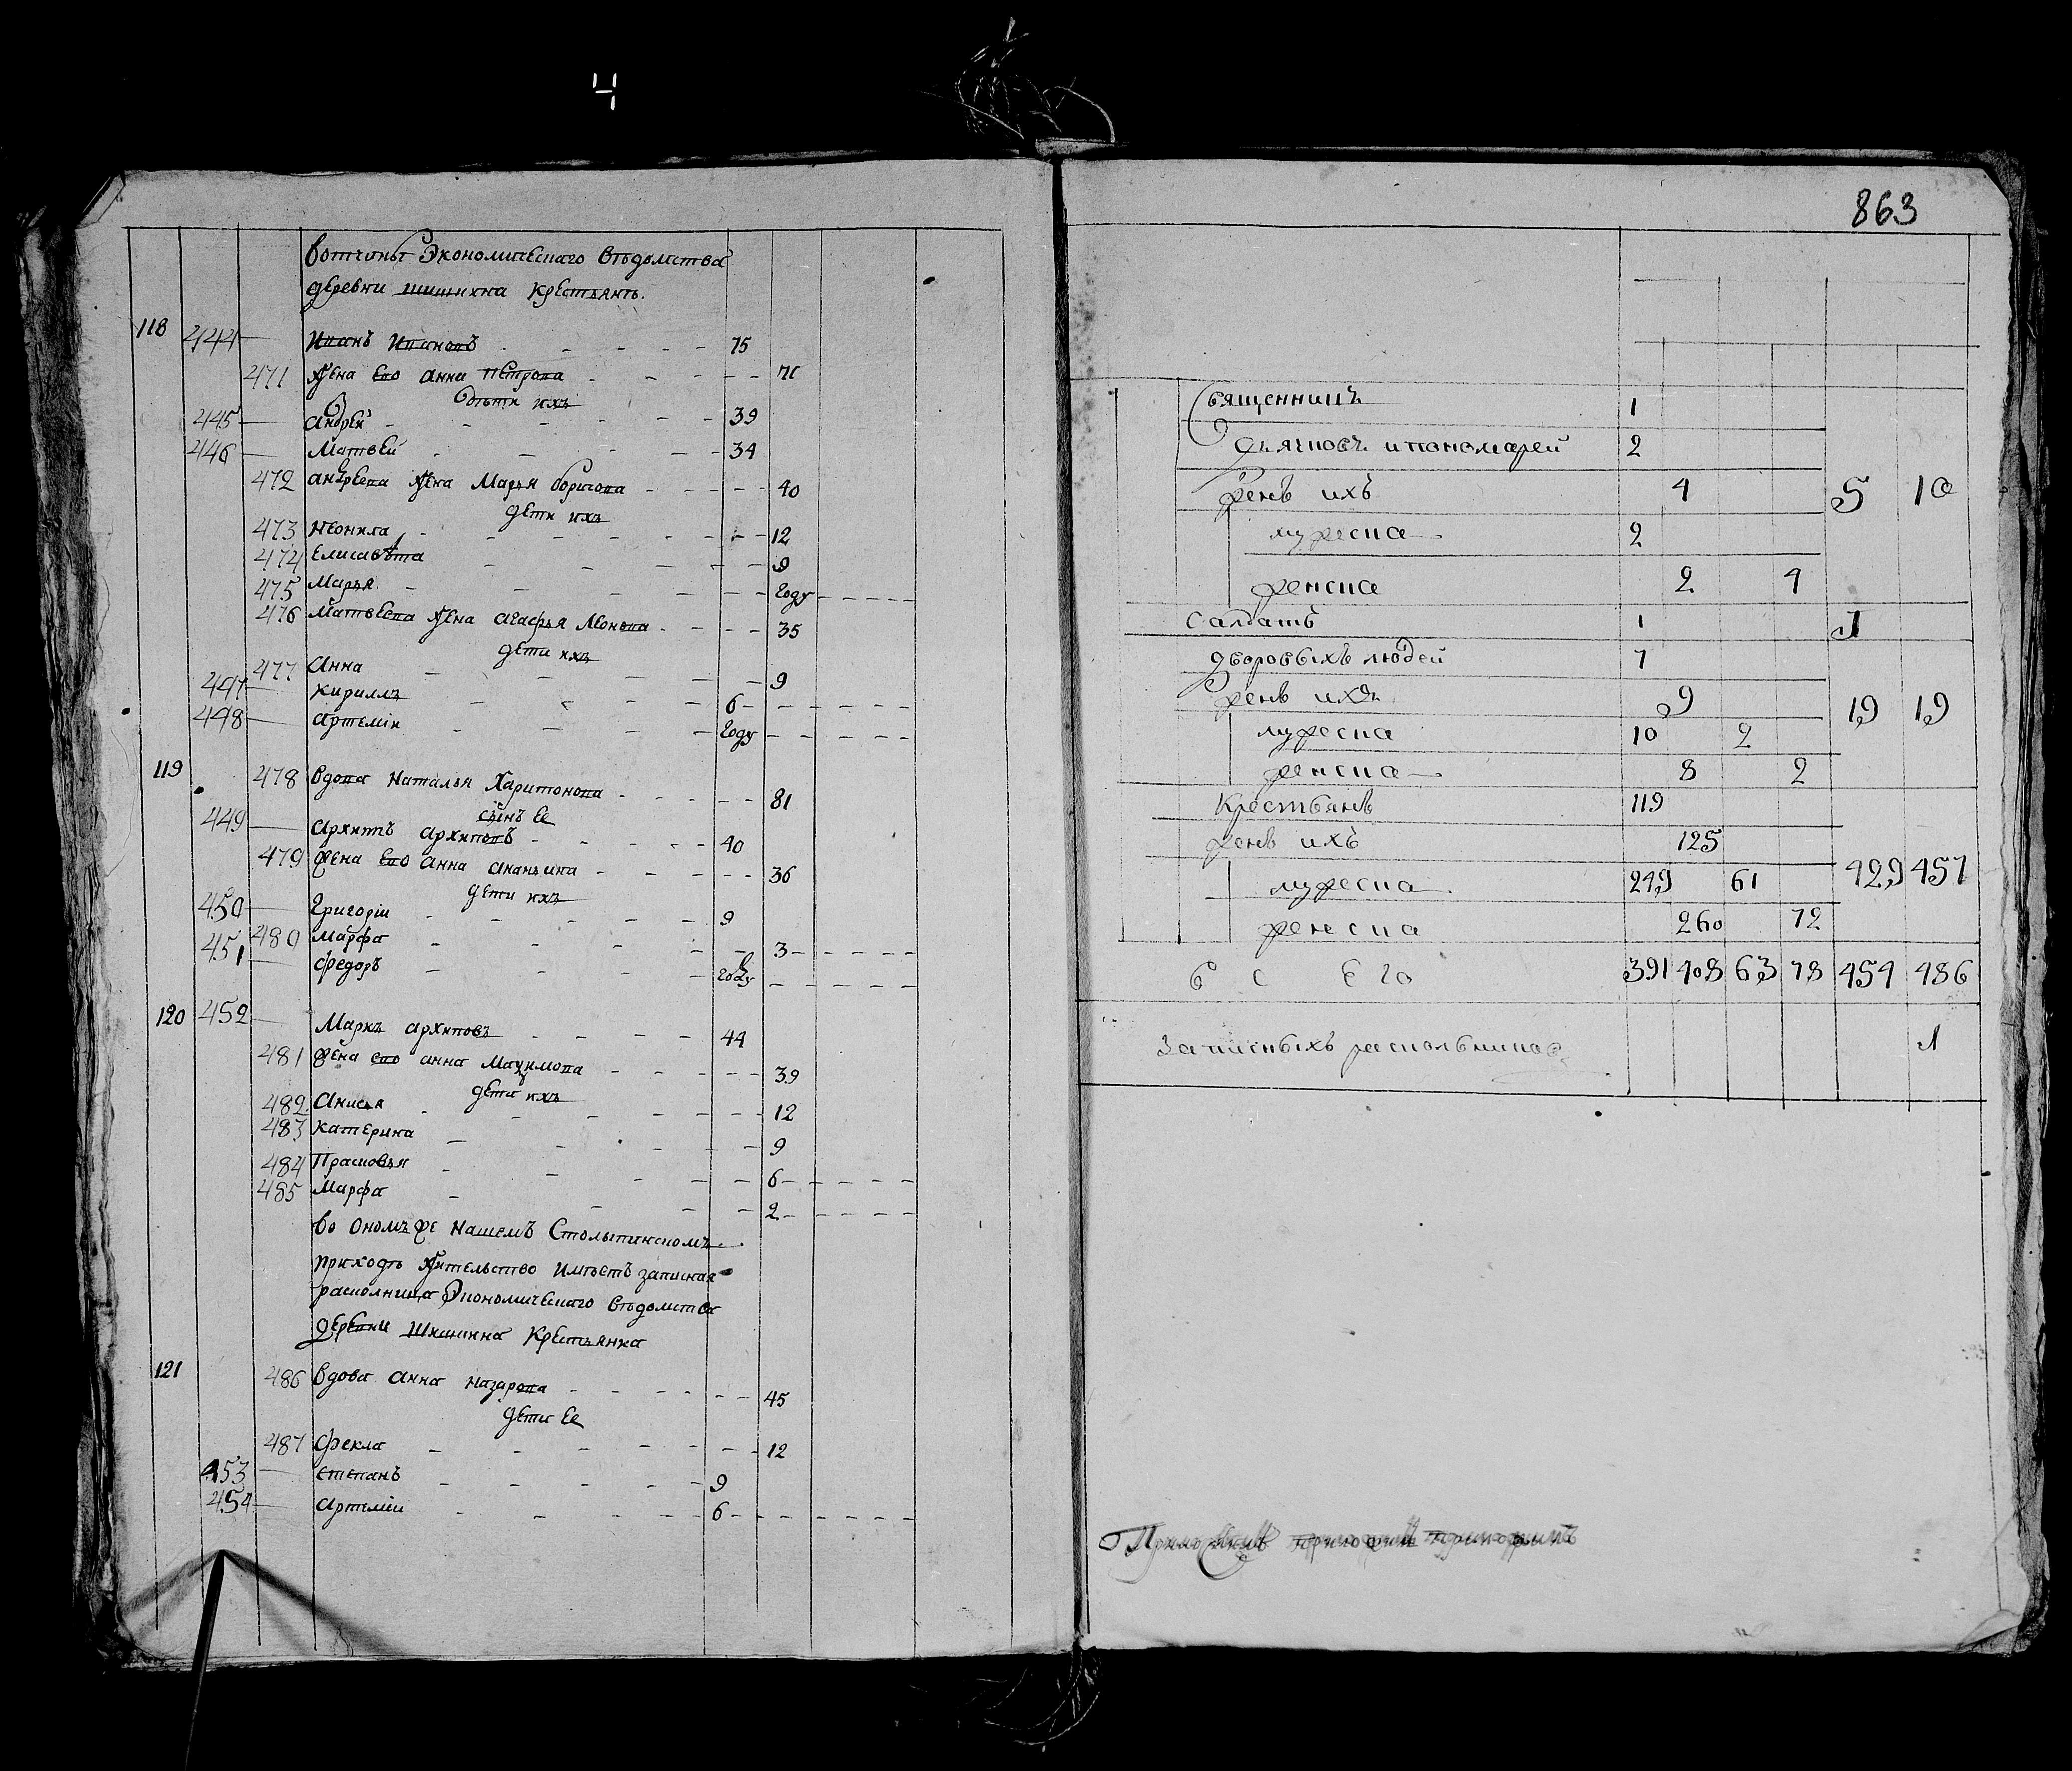 Ч
вотчины Экономическаго вѣдомства
деревни шишкина крестьянъ.
118 444 Иванъ Ивановъ 75
471 жена ево анна Петрова 71
дѣти ихъ
445 андрей 39
446 Матвей 34
472 андреева жена Марья борисова 40
дети ихъ
473 неонила 12
474 елисавѣта 9
475 Марья году
476 Матвеева жена агафья Леонова 35
дети ихъ
477 анна 9
447 кириллъ 6
448 артемiи году
119 478 вдова наталья Харитонова 81
сынъ ее
449 архипъ архиповъ 40
479 жена ево анна ананьина 36
дети ихъ
450 григорiи 9
480 марфа 3
451 федоръ году
120 452 Маркъ архиповъ 44
481 жена ево анна Маѯимова 39
дети ихъ
482 анисья 12
483 катерина 9
484 Прасковья 6
485 Марфа 2
во ономъ же нашемъ Столыпинскомъ
приходѣ жительство имѣетъ записная
расколница Экономическаго вѣдомства
деревни шишкина крестьянка
121 486 вдова анна назарова 45
дети ее
487 фекла 12
453 степанъ 9
454 артемiи 6
863
Священникъ 1
дьячковъ и пономарей 2
женъ ихъ 4 5 10
мужеска 2
женска 2 4
Салдатъ 1 1
дворовыхъ людей 7
женъ ихъ 9 19 19
мужеска 10 2
женска 8 2
Крестьянъ 119
женъ ихъ 125
мужеска 249 61 429 457
женска 260 72
в с е го 391 408 63 78 454 486
Записныхъ раскольников 1